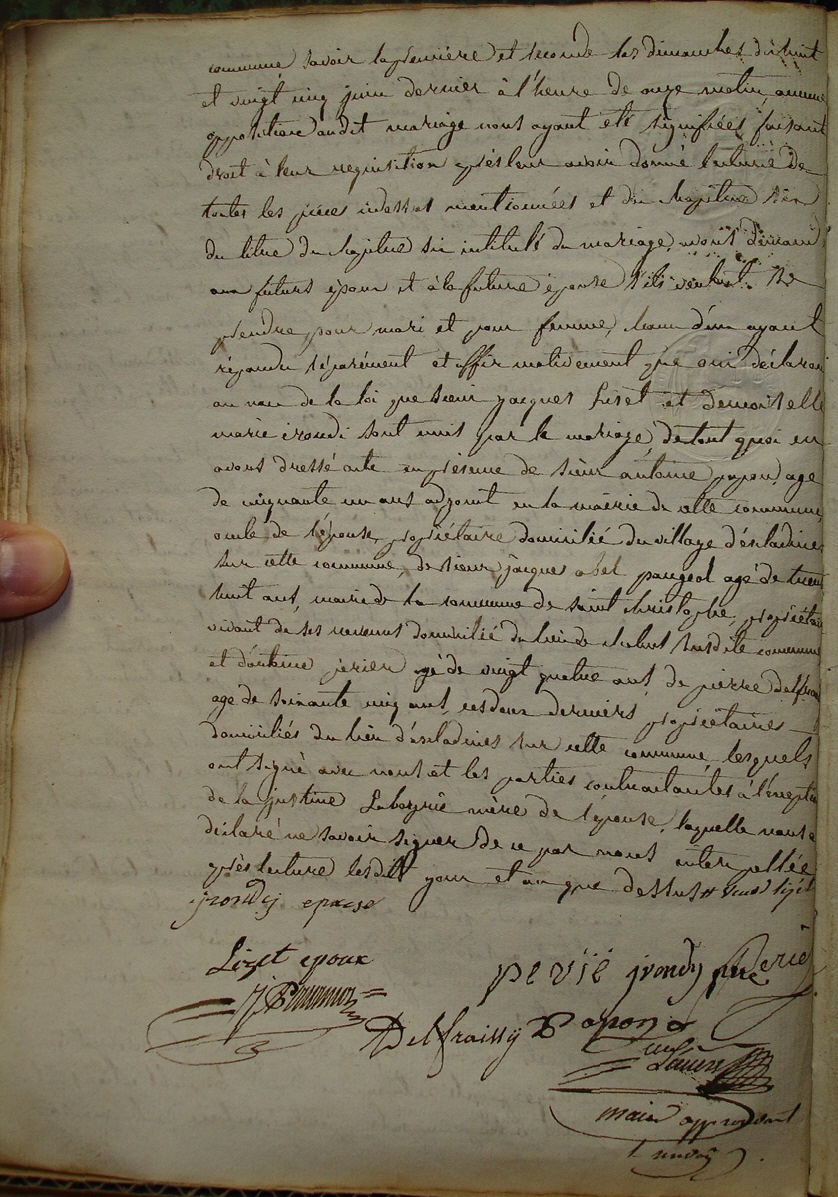 commune savoir la première et seconde les dimanches dixhuit
et vingt cinq juin dernier à l'heure de onze matin, aucune
opposition audit mariage nous ayant été signifiées faisant
droit à leur requisition après leur avoir donné lecture de
toutes les pièces cidessus mentionnées et du chapitre
du titre du intitulé du mariage, avons demandé
aux futurs epoux et à la future épouse s'ils veulent se
prendre pour mari et pour femme, chacun d'eux ayant
répondu séparément et affirmativement que oui déclarons
au nom de la loi que sieur jacques Lizet et demoiselle
marie irondi sont unis par le mariage, de tout quoi en
avons dressé acte en présence de sieur antoine papon, age
de cinquante un ans adjoint en la mairie de cette commune,
oncle de l'épouse, propriétaire domicilié du village d'escladines
sur cette commune, de sieur jacques abel agé de trente
huit ans, maire de la commune de saint christophe, propriétaire
vivant de ses revenus domicilié du lieu de susdite commune
et d'antoine agé de vingt quatre ans de pierre delfraissy
age de soixante cinq ans, ces deux derniers propriétaires
domiciliés du lieu d'escladines sur cette commune, lesquels
ont signé avec nous et les parties contractantes à l'éxception
de la justine Labeyrie mère de l'épouse, laquelle nous a
déclaré ne savoir signer de ce par nous interpellée
après lecture lesdits jour et an que dessus
jrondy epouse
Lizet epoux
jrondy père
Delfraissy Papon
maire approuvant